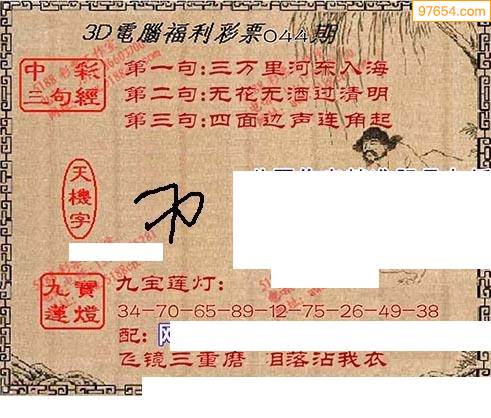 97654.com
3D電腦福利彩票044期
中彩
三句經
第一句:三万里河东入海
第二句:无花无酒过清明
第三句:四面边声连角起
天機字
九寶
蓮燈
九宝莲灯:
34-70-65-89-12-75-26-49-38
配:
飞镜三重磨 泪落沾我衣